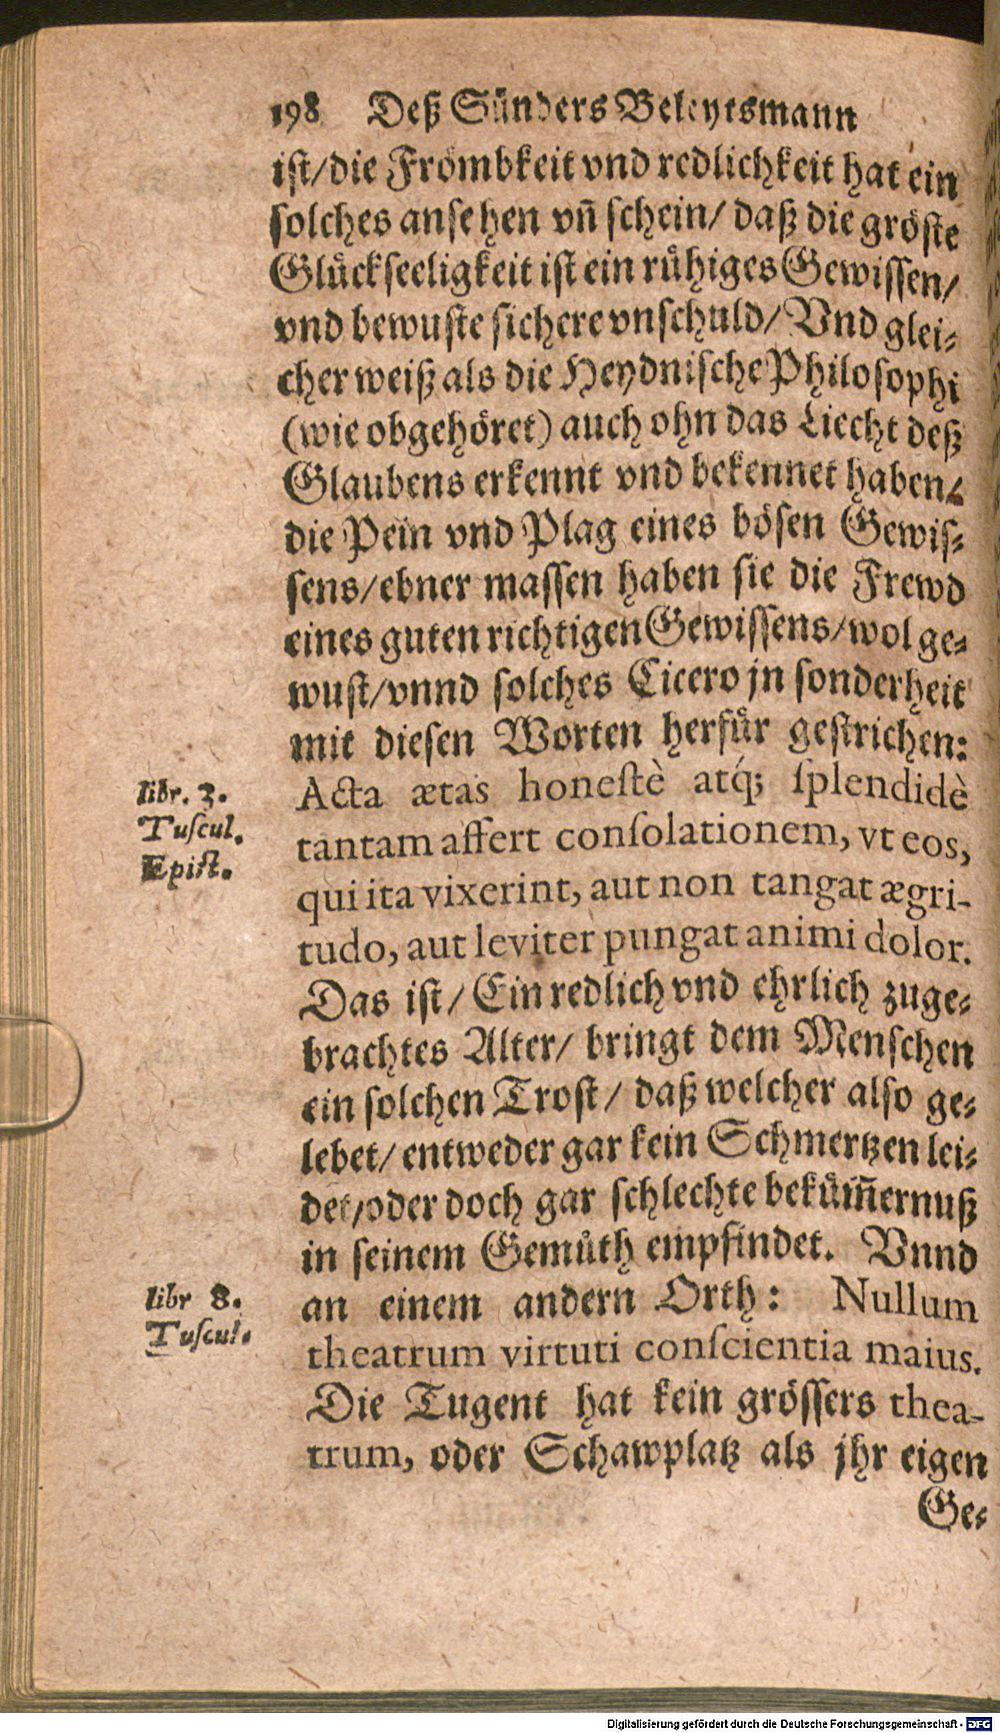 198 Deß Sünders Beleytsmann
ist/die Frömbkeit vnd redlichkeit hat ein
solches ansehen vñ schein/ daß die gröste
Glückseeligkeit ist ein rühiges Gewissen/
vnd bewuste sichere vnschuld/ Vnd glei-
cher weiß als die Heydnische Philosophi
(wie obgehöret) auch ohn das Liecht deß
Glaubens erkennt vnd bekennet haben/
die Pein vnd Plag eines bösen Gewis-
sens/ebner massen haben sie die Frewd
eines guten richtigen Gewissens/wol ge-
wust/vnnd solches Cicero jn sonderheit
mit diesen Worten herfür gestrichen:
libr. 3.
Tuscul.
Epist.
Acta ætas honestè atq́; splendidè
tantam affert consolationem, vt eos,
qui ita vixerint, aut non tangat ægri-
tudo, aut leviter pungat animi dolor.
Das ist/ Ein redlich vnd ehrlich zuge-
brachtes Alter/ bringt dem Menschen
ein solchen Trost/ daß welcher also ge-
lebet/ entweder gar kein Schmertzen lei-
det/oder doch gar schlechte bekümñernuß
in seinem Gemüth empfindet. Vnnd
libr 8.
Tuscul.
an einem andern Orth: Nullum
theatrum virtuti conscientia maius.
Die Tugent hat kein grössers thea-
trum, oder Schawplatz als jhr eigen
Ge-
Digitalisierung gefördert durch die Deutsche Forschungsgemeinschaft - DFG